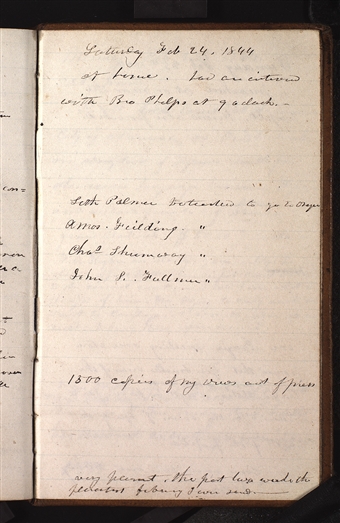 Saturday Feb 24, 1844
At home. had an interview
with Bro Phelps at 9 oclock. -
Seth Palmer volunteered to go to Oregon
Amos. Fielding. "
Chas Shumway "
John S. Fullmer "
1500 copies of my views out of press
very pleasant. the past two weeks the
pleasantest febuary I ever